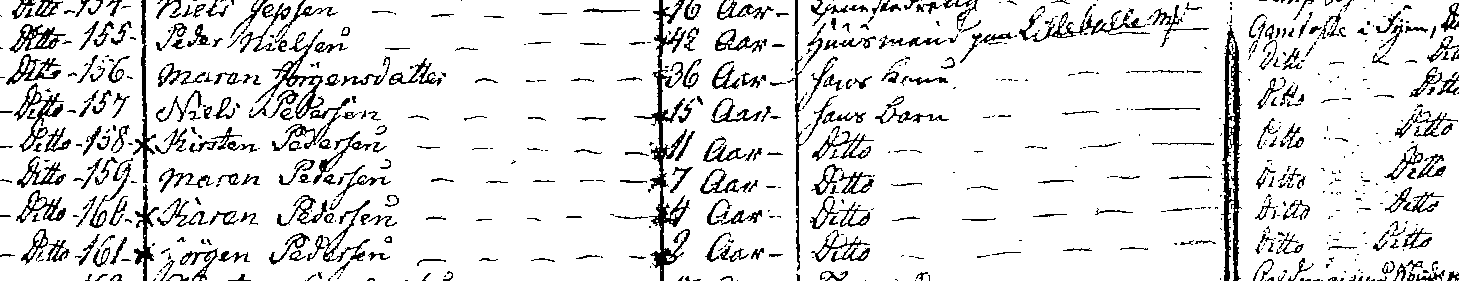 Ditto - 154 - Niels Jepsen - - - - 16 Aar -
Ditto - 155 - Peder Nielsen - - - - 42 Aar - Huusmand paa Lilleballe Mk Gamtofte i Fyen,
Ditto - 156 - Maren Jörgensdatter - - - - 36 Aar - hans kone - - - Ditto - - Ditto
- Ditto - 157 Niels Pedersen - - - - - 15 Aar - hans Barn - - - - Ditto - - Ditto
- Ditto - 158 - x Kirsten Pedersen - - - - 11 Aar - Ditto - - - - Ditto - Ditto
- Ditto - 159 - Maren Pedersen - - - - 7 Aar - Ditto - - - - Ditto - Ditto
- Ditto - 160 - x Karen Pedersen - - - - 4 Aar - Ditto - - - - Ditto - Ditto
- Ditto - 161 - x Jörgen Pedersen - - - - 2 Aar - Ditto - - - - Ditto - Ditto